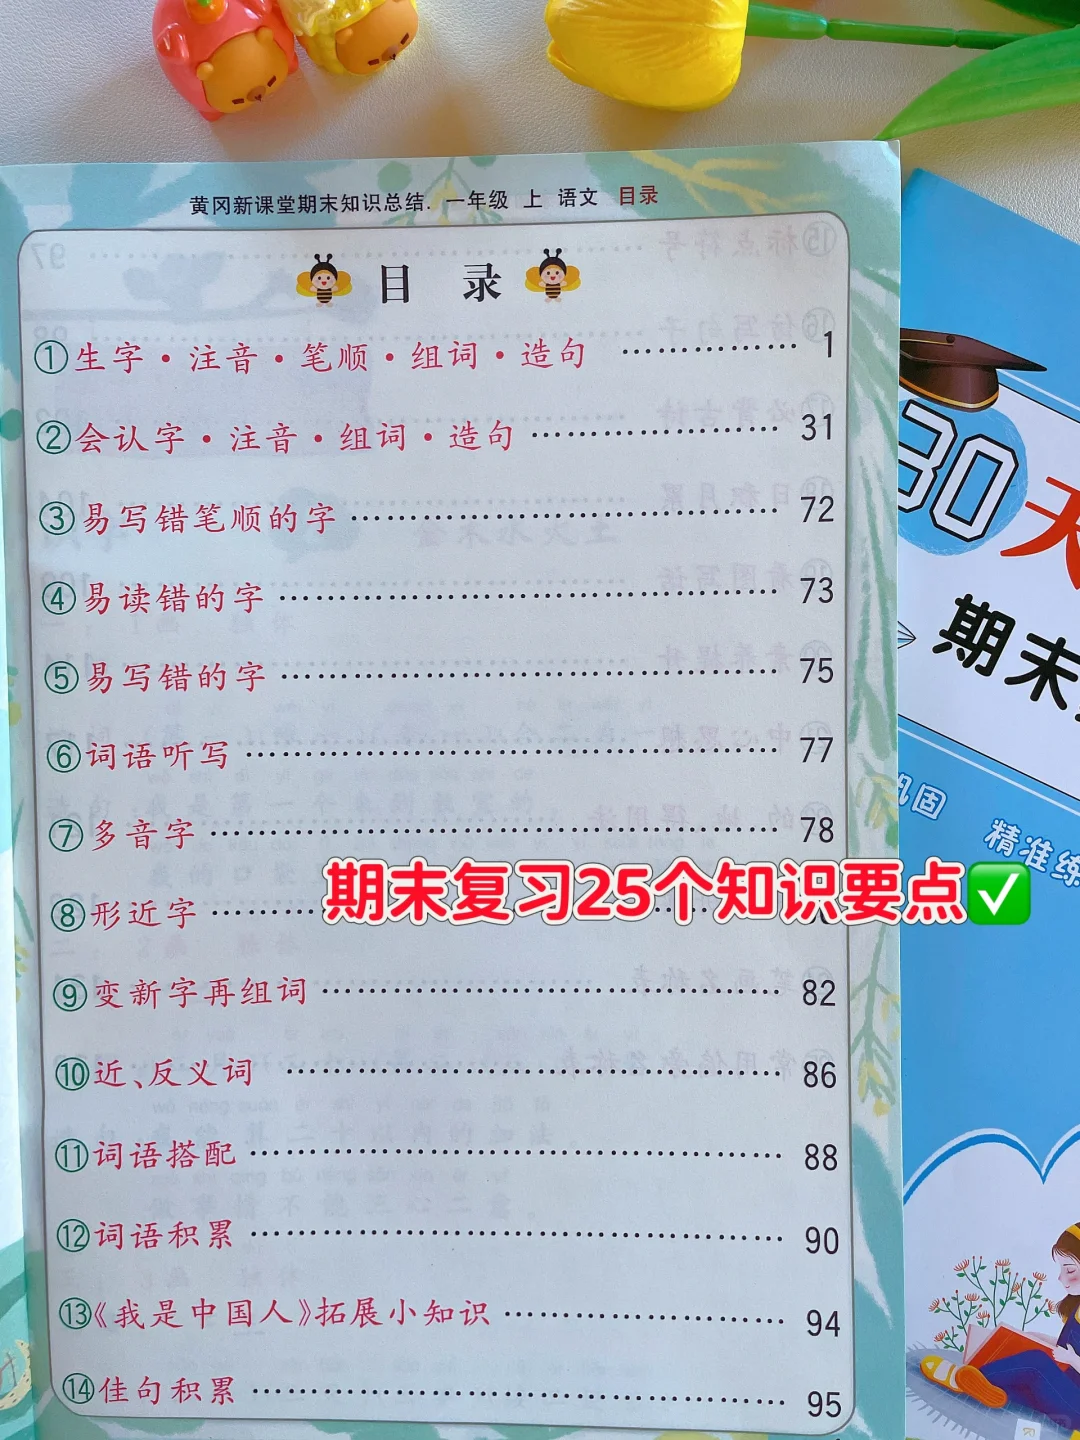 黄冈新课堂期末知识总结. 一年级 上 语文 目录
目 录
①生字·注音·笔顺·组词·造句 ……………… 1
②会认字·注音·组词·造句 …………………… 31
③易写错笔顺的字 …………………………………… 72
④易读错的字 ………………………………………… 73
⑤易写错的字 ………………………………………… 75
⑥词语听写 …………………………………………… 77
⑦多音字 ……………………………………………… 78
⑧形近字 ………
期末复习25个知识要点✅
⑨变新字再组词 ……………………………………… 82
⑩近、反义词 ………………………………………… 86
⑪词语搭配 …………………………………………… 88
⑫词语积累 …………………………………………… 90
⑬《我是中国人》拓展小知识 ……………………… 94
⑭佳句积累 …………………………………………… 95
30天
期末
巩固
精准练